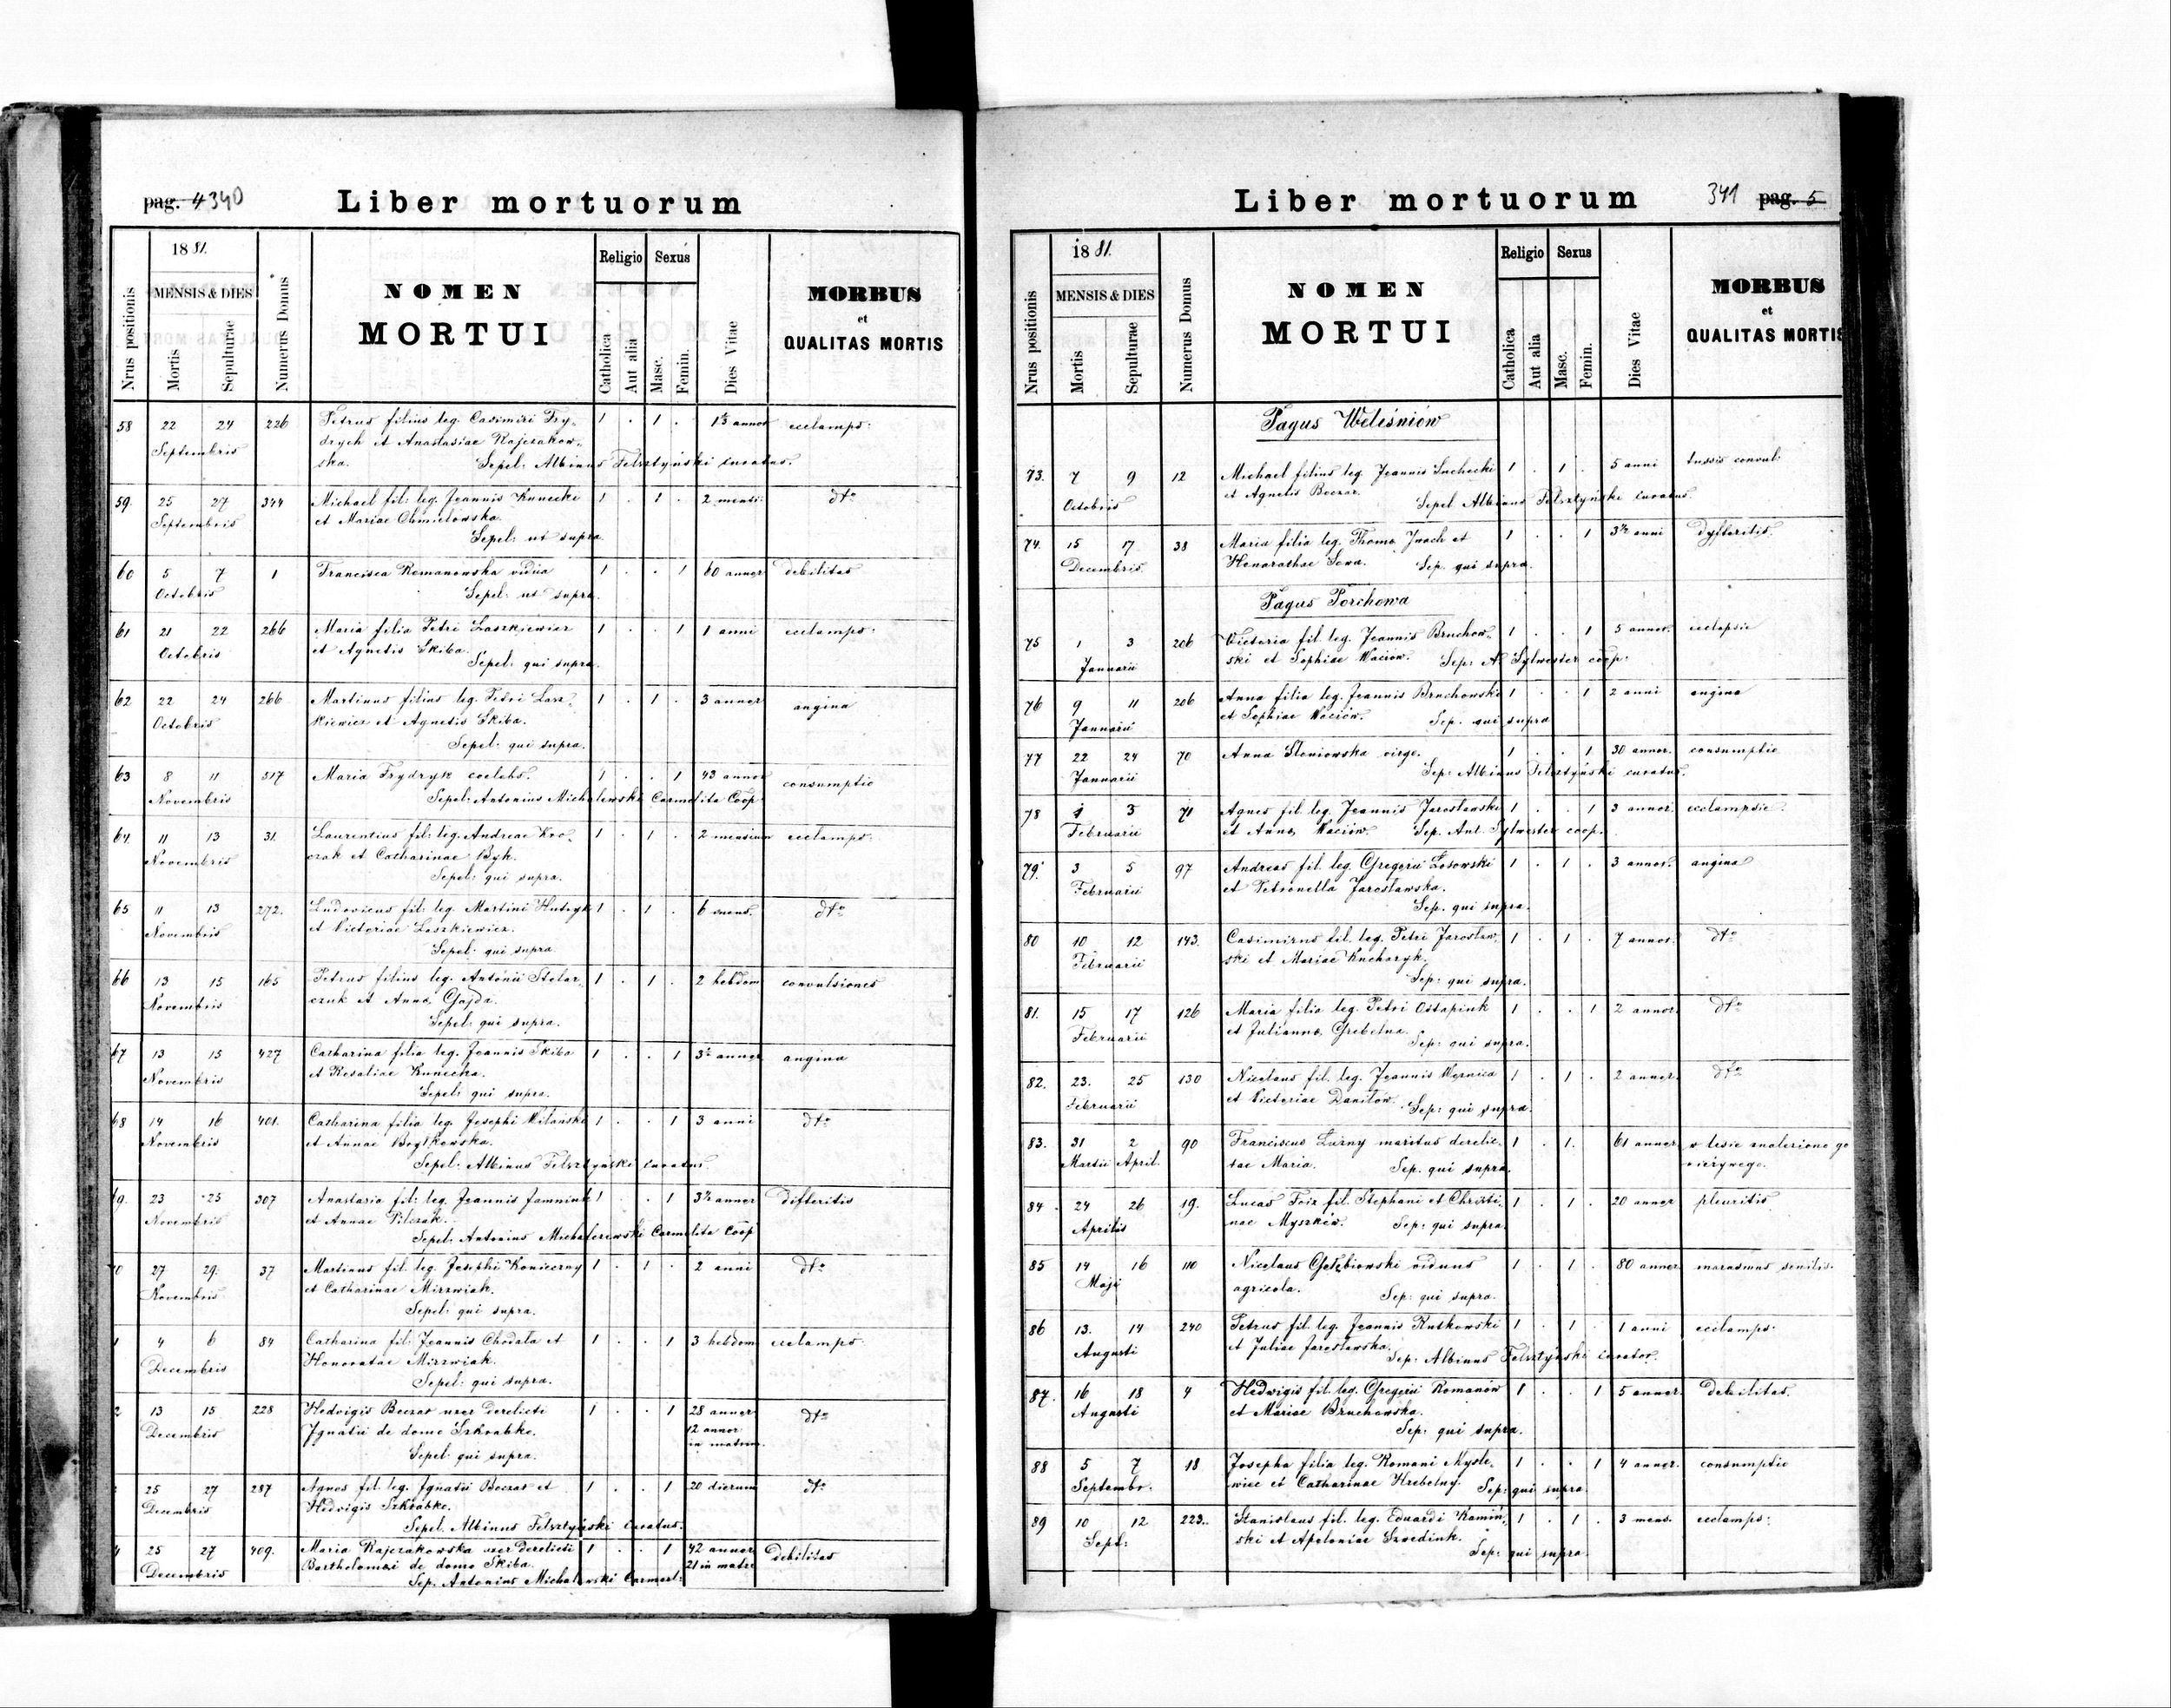 pag. 4 340
Liber mortuorum
Nrus positionis
1881.
MENSIS & DIES
Mortis
Sepulturae
Numerus Domus
NOMEN
MORTUI
Religio
Catholica
Aut alia
Sexus
Masc.
Femin.
Dies Vitae
MORBUS
et
QUALITAS MORTIS
58 22 24 226 Petrus filius leg. Casimiri Fry- 1 . 1 . annor ecclamps:
Septembris drych et Anastasiae Rajczakow-
ska. Sepel: Albinus Felsztyński curatus.
59. 25 27 344 Michael fil: leg. Joannis Kunecki 1 . 1 . 2 mensi: dto
Septembris et Mariae Chmielowska.
Sepel: ut supra
60 5 7 1 Francisca Romanowska vidua 1 . . 1 60 annor debilitas
Octobris Sepel: ut supra.
61 21 22 266 Maria filia Petri Laszkiewicz 1 . . 1 1 anni ecclamps:
Octobris et Agnetis Skiba.
Sepel: qui supra.
62 22 24 266 Martinus filius leg. Petri Lasz- 1 . 1 . 3 annor angina
Octobris kiewicz et Agnetis Skiba.
Sepel: qui supra.
63 8 11 317 Maria Frydryk coelebs. 1 . . 1 43 annor consumptio
Novembris Sepel: Antonius Michalewski Carmelita Coop
64. 11 13 31. Laurentius fil: leg. Andreae Kro- 1 . 1 . 2 mensium ecclamps:
Novembris czak et Catharinae Byk.
Sepel: qui supra.
65 11 13 272. Ludovicus fil: leg. Martini Hutryk 1 . 1 . 6 mens. dto
Novembris et Victoriae Laszkiewicz.
Sepel: qui supra
66 13 15 165 Petrus filius leg. Antonii Stolar- 1 . 1 . 2 hebdom convulsiones
Novembris czuk et Anna Gajda.
Sepel: qui supra.
67 13 15 427 Catharina filia leg. Joannis Skiba 1 . . 1 3½ annor angina
Novembris et Rosaliae Kunecka.
Sepel: qui supra.
68 14 16 401. Catharina filia leg. Josephi Wilanski 1 . . 1 3 anni dto
Novembris et Annae
Sepel: Albinus Felsztyński curatus.
69. 23 25 307 Anastasia fil: leg. Joannis Jamniuk 1 . . 1 3½ annor difteritis
Novembris et Annae Pilczak.
Sepel: Antonius Carmelita Coop
27 29. 37 Martinus fil. leg. Josephi Konieczny 1 . 1 . 2 anni dto
Novembris et Catharinae Mirzwiak.
Sepel: qui supra.
4 6 84 Catharina fil: Joannis Chodata et 1 . . 1 3 hebdom ecclamps
Decembris Honoratae Mirzwiak.
Sepel: qui supra.
13 15 228 Hedvigis Beczar uxor derelicti 1 . . 1 28 annor dto
Decembris Ignatii de domo Szkrabko. 12 annor
Sepel: qui supra. in matrim.
25 27 287 Agnes fil. leg. Ignatii Beczar et 1 . . 1 20 dierum dto
Decembris Hedvigis Szkrabko.
Sepel. Albinus Felsztyński curatus.
25 27 409. Maria Rajczakowska uxor derelicti 1 . . 1 42 annor debilitas
Decembris Bartholomaei de domo Skiba. 21 in matr
Sep. Antonius Michalewski Carmel:
341 pag. 5
Liber mortuorum
Nrus positionis
1881.
MENSIS & DIES
Mortis
Sepulturae
Numerus Domus
NOMEN
MORTUI
Religio
Catholica
Aut alia
Sexus
Masc.
Femin.
Dies Vitae
MORBUS
et
QUALITAS MORTIS
Pagus Weleśniów
73. 7 9 12 Michael filius leg. Joannis Suchecki 1 . 1 . 5 anni tussis convul:
Octobris et Agnetis Beczar.
Sepel Albinus Felsztyński curatus.
74. 15 17 38 Maria filia leg. Thoma Jwach et 1 . . 1 3½ anni dyfteritis
Decembris Honorathae Sowa. Sep. qui supra.
Pagus Porchowa
75 1 3 206 Victoria fil. leg. Joannis Bruchow- 1 . . 1 5 annor. eclapsie
Januarii ski et Sophiae Waciow. Sep: A. Sylwester coop:
76 9 11 206 Anna filia leg. Joannis Bruchowski 1 . . 1 2 anni angina
Januarii et Sophiae Waciow. Sep. qui supra
77 22 24 70 Anna Sloniowska virgo. 1 . . 1 30 annor. consumptio
Januarii Sep: Albinus Felsztyński curatus.
78 1 3 71 Agnes fil. leg. Joannis Jaroslawski 1 . . 1 3 annor. ecclampsie
Februarii et Anna Waciow. Sep. Ant. Sylwester coop.
79. 3 5 97 Andreas fil. leg. Gregorii Losowski 1 . 1 . 3 annor. angina
Februarii et Petronella Jaroslawska.
Sep. qui supra.
80 10 12 143. Casimirus fil. leg. Petri Jaroslaw- 1 . 1 . 7 annor. dto
Februarii ski et Mariae Kucharyk.
Sep: qui supra.
81. 15 17 126 Maria filia leg. Petri Ostapiuk 1 . . 1 2 annor. dto
Februarii et Julianna Grebelna.
Sep: qui supra.
82. 23. 25 130 Nicolaus fil. leg. Joannis Wernica 1 . 1 . 2 annor. dto
Februarii et Victoriae Daniłow. Sep: qui supra.
83. 31 2 90 Franciscus Luzny maritus derelic- 1 . 1. 61 annor w lesie znaleziono go
Martii April. tae Maria. Sep. qui supra. nieżywego.
84. 24 26 19. Lucas Foiz fil. Stephani et Christi- 1 . 1 . 20 annor pleuritis
Aprilis nae Myszków. Sep: qui supra.
85 14 16 110 Nicolaus viduus 1 . 1 . 80 annor marasmus senilis.
Maji agricola. Sep: qui supra.
86 13. 14 240 Petrus fil. leg. Joannis Rutkowski 1 . 1 . 1 anni ecclamps:
Augusti et Juliae Jaroslawska.
Sep: Albinus Felsztyński curator.
87. 16 18 4 Hedwigis fil. leg. Gregorii Romanów 1 . . 1 5 annor. debilitas.
Augusti et Mariae Bruchowska.
Sep: qui supra.
88 5 7 18 Josepha filia leg. Romani Mysle- 1 . . 1 4 annor. consumptio
Septembr. wicz et Catharinae Hrebelny. Sep: qui supra.
89 10 12 223. Stanislaus fil. leg. Eduardi Kamiń- 1 . 1 . 3 mens. ecclamps:
Sept: ski et Apoloniae Szvedink.
Sep: qui supra.